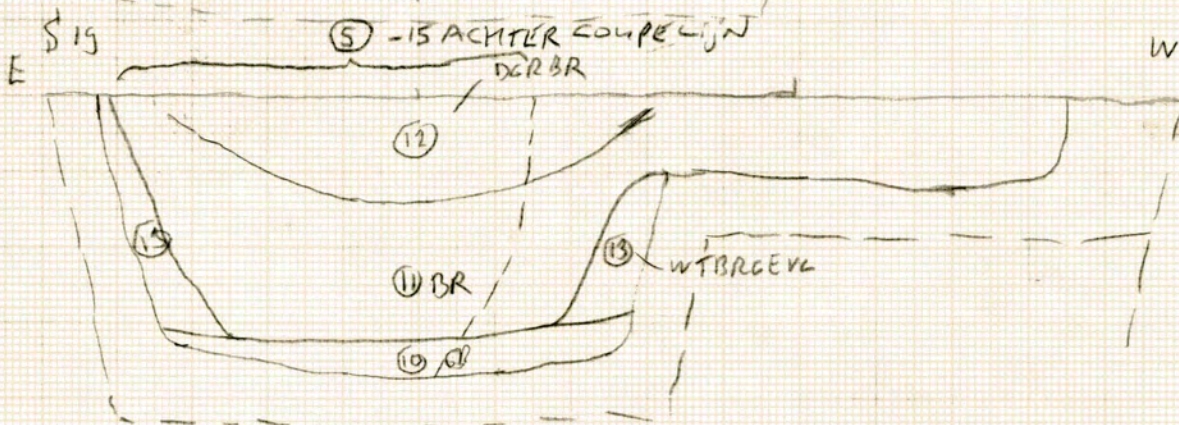 S 19
⑤ -15 ACHTER COUPELIJN
E
W
DGRBR
⑫
⑬
⑬ WTBRGEVL
⑪ BR
⑩